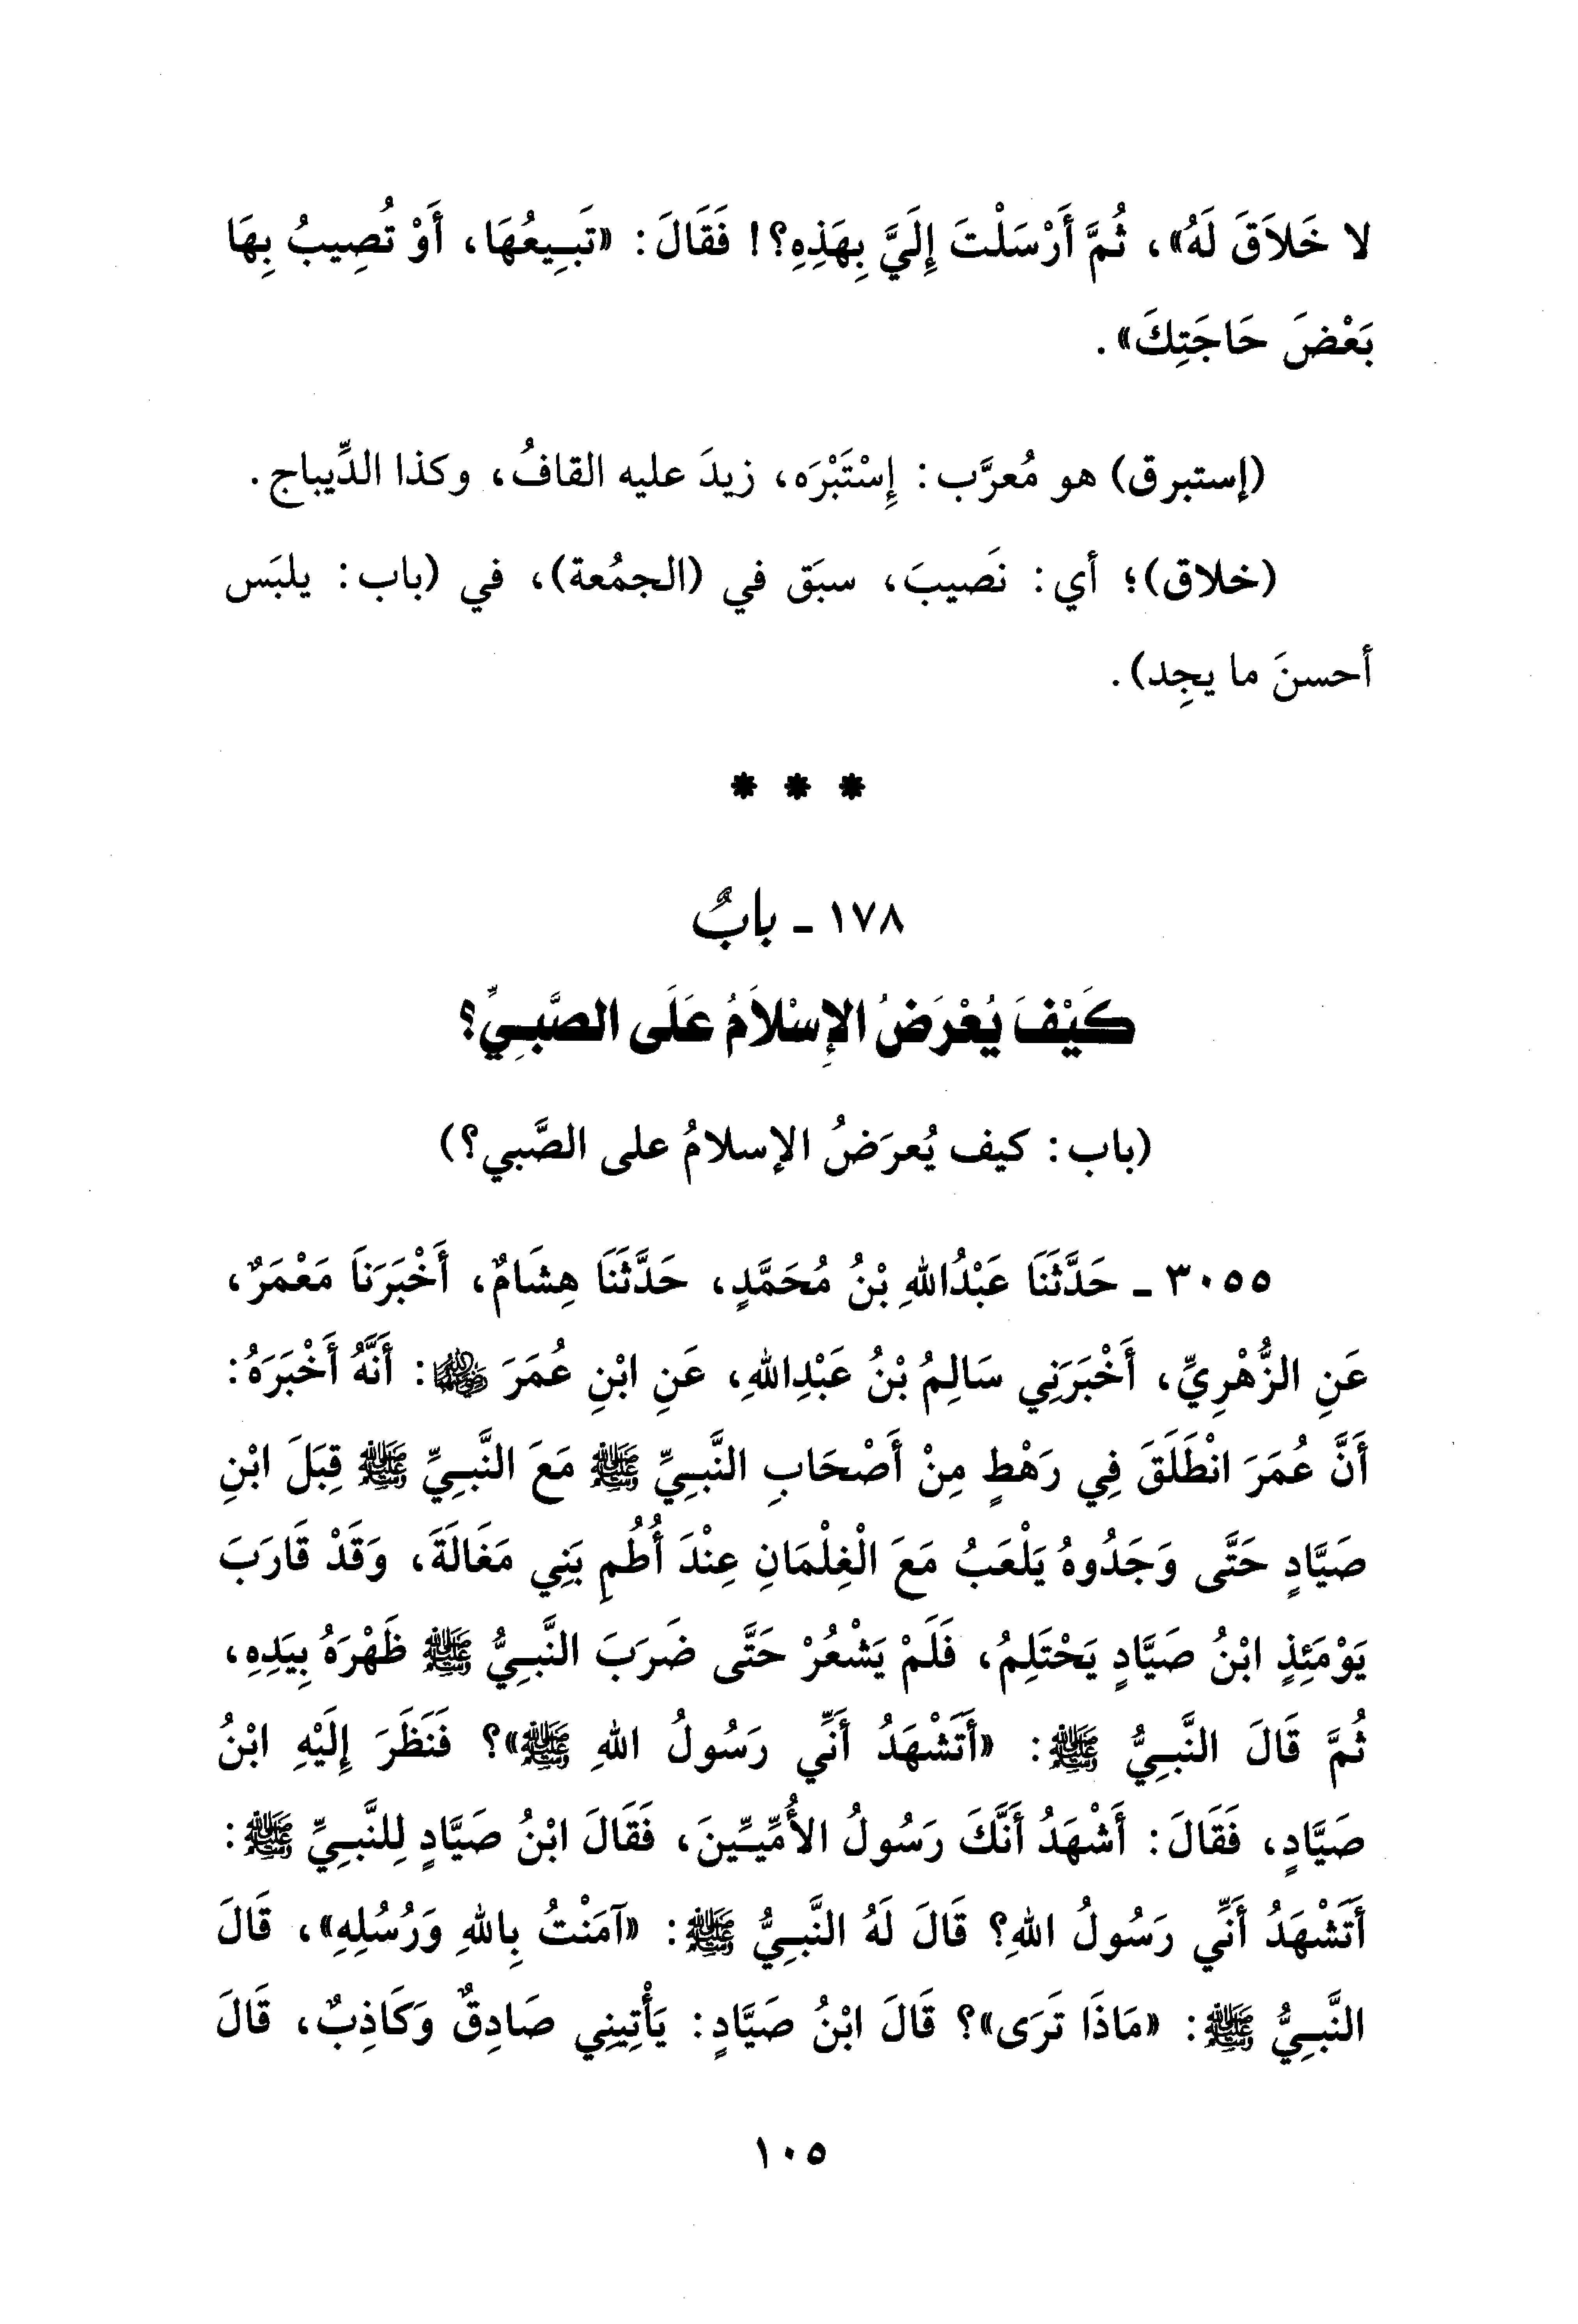 لا خَلاَقَ لَهُ»، ثُمَّ أَرْسَلْتَ إِلَيَّ بِهَذِهِ؟! فَقَالَ: «تَبِيعُهَا، أَوْ تُصِيبُ بِهَا
بَعْضَ حَاجَتِكَ».
(إستبرق) هو مُعرَّب: إِسْتَبْرَه، زيدَ عليه القافُ، وكذا الدِّيباج.
(خلاق)؛ أي: نَصيبَ، سبَق في (الجمُعة)، في (باب: يلبَس
أحسنَ ما يجِد).
* * *
١٧٨ - بابٌ
كَيْفَ يُعْرَضُ الإِسْلاَمُ عَلَى الصَّبِيِّ؟
(باب: كيف يُعرَضُ الإسلامُ على الصَّبي؟)
٣٠٥٥ - حَدَّثَنَا عَبْدُاللهِ بْنُ مُحَمَّدٍ، حَدَّثَنَا هِشَامٌ، أَخْبَرَنَا مَعْمَرٌ،
عَنِ الزُّهْرِيِّ، أَخْبَرَنِي سَالِمُ بْنُ عَبْدِاللهِ، عَنِ ابْنِ عُمَرَ ﵁: أَنَّهُ أَخْبَرَهُ:
أَنَّ عُمَرَ انْطَلَقَ فِي رَهْطٍ مِنْ أَصْحَابِ النَّبِيِّ ﷺ مَعَ النَّبِيِّ ﷺ قِبَلَ ابْنِ
صَيَّادٍ حَتَّى وَجَدُوهُ يَلْعَبُ مَعَ الْغِلْمَانِ عِنْدَ أُطُمِ بَنِي مَغَالَةَ، وَقَدْ قَارَبَ
يَوْمَئِذٍ ابْنُ صَيَّادٍ يَحْتَلِمُ، فَلَمْ يَشْعُرْ حَتَّى ضَرَبَ النَّبِيُّ ﷺ ظَهْرَهُ بِيَدِهِ،
ثُمَّ قَالَ النَّبِيُّ ﷺ: «أَتَشْهَدُ أَنِّي رَسُولُ اللهِ ﷺ»؟ فَنَظَرَ إِلَيْهِ ابْنُ
صَيَّادٍ، فَقَالَ: أَشْهَدُ أَنَّكَ رَسُولُ الأُمِّيِّينَ، فَقَالَ ابْنُ صَيَّادٍ لِلنَّبِيِّ ﷺ:
أَتَشْهَدُ أَنِّي رَسُولُ اللهِ؟ قَالَ لَهُ النَّبِيُّ ﷺ: «آمَنْتُ بِاللهِ وَرُسُلِهِ»، قَالَ
النَّبِيُّ ﷺ: «مَاذَا تَرَى»؟ قَالَ ابْنُ صَيَّادٍ: يَأْتِينِي صَادِقٌ وَكَاذِبٌ، قَالَ
١٠٥